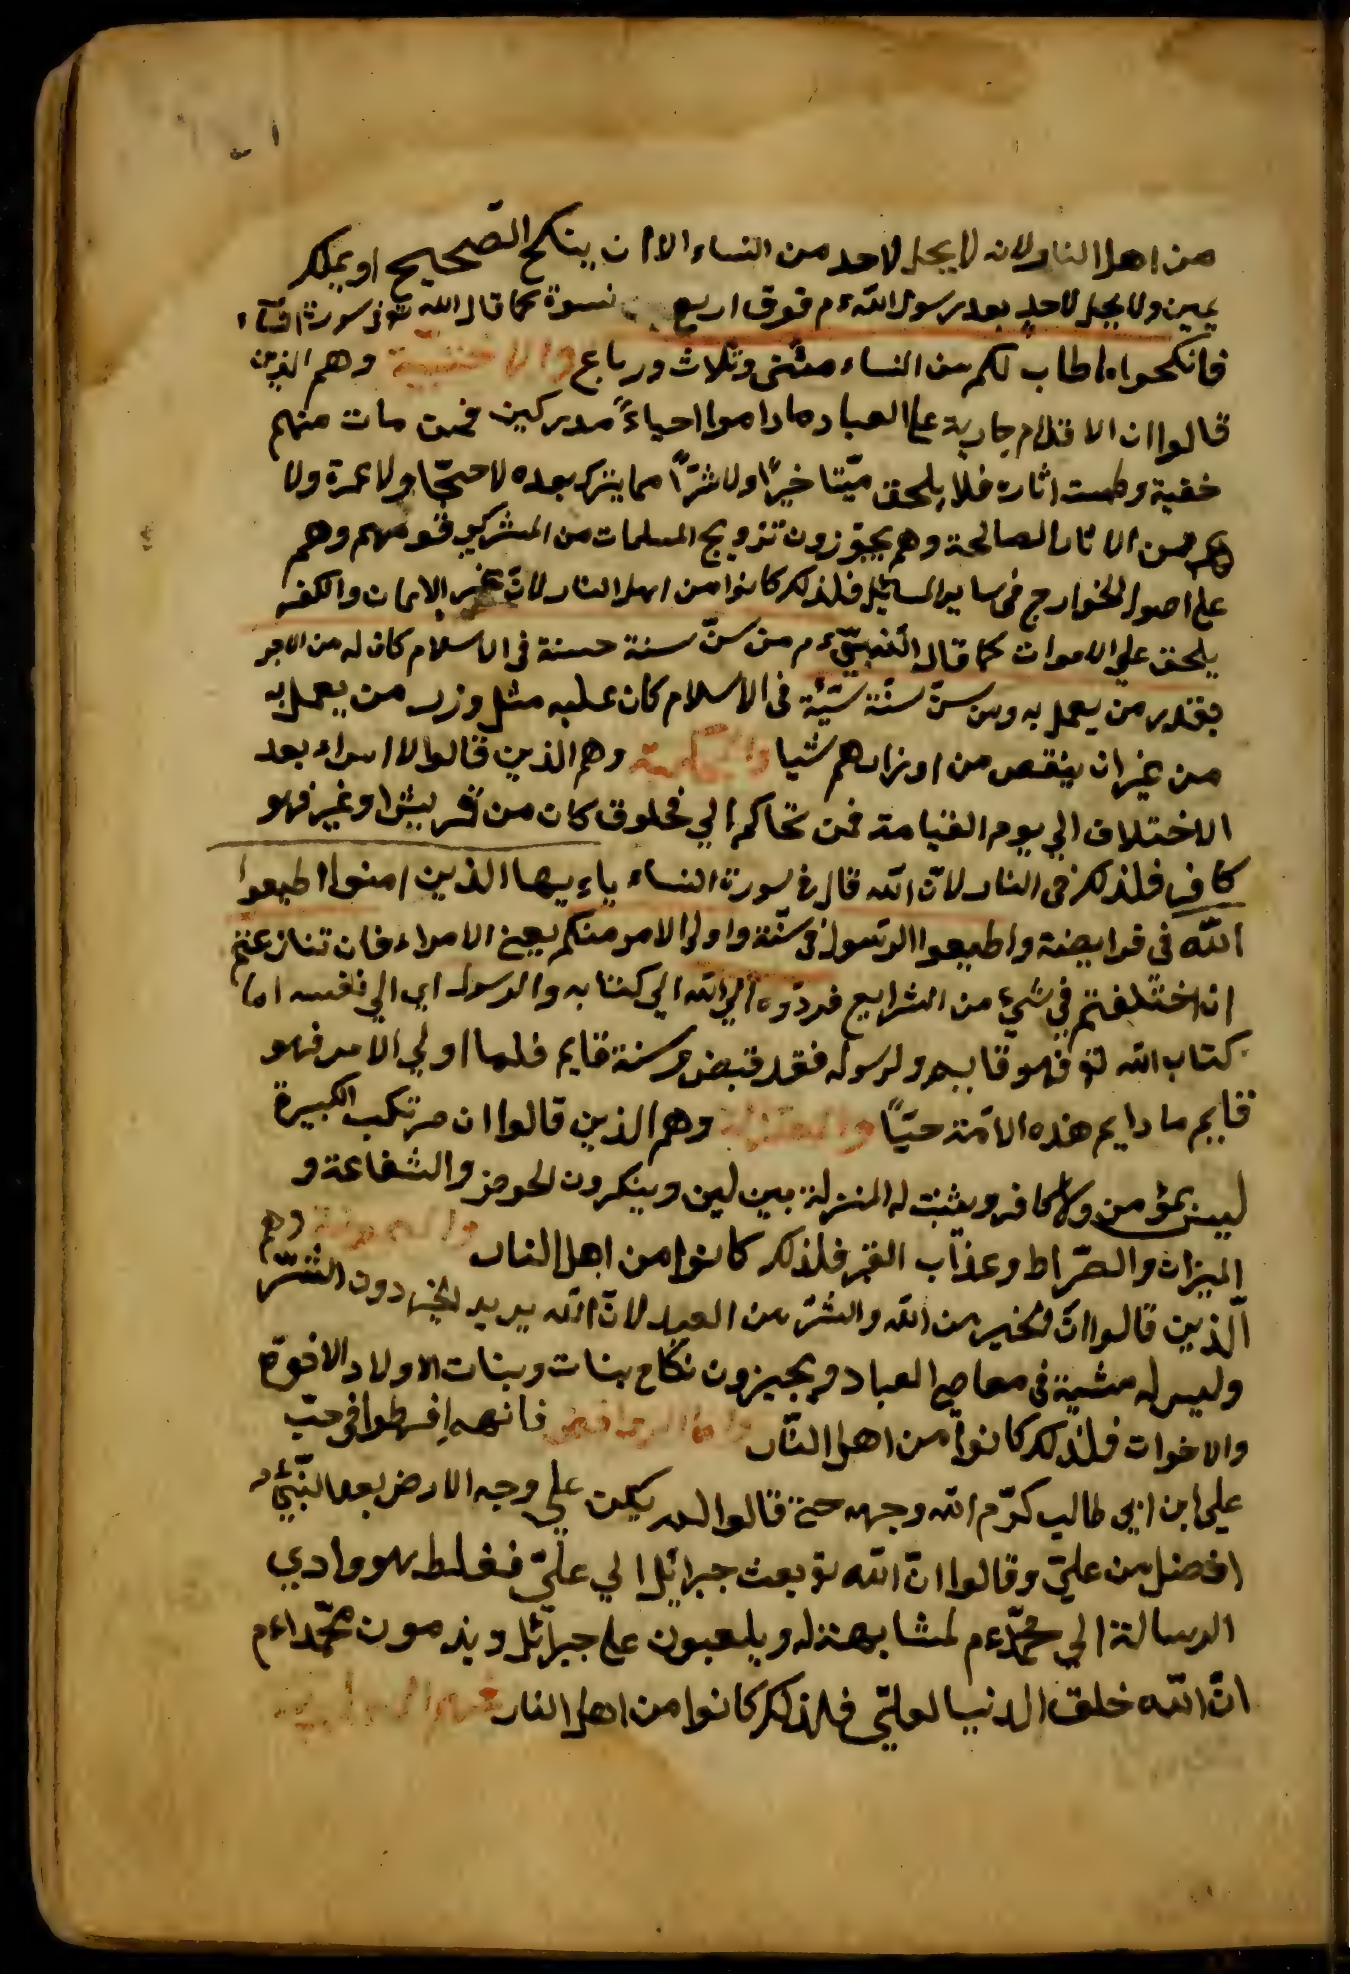 من اهل النار لانه لا يحل لاحد من النساء الا ان ينكح الصّحيح او بملك
يمين ولا يحل لاحدٍ بعد رسول اللّه ءم فوق اربع نسوة كما قال الله تع فى سورة النسآء
فانكحوا ما طاب لكم من النساء مثنى وثلاث ورباع والاخنسيّة وهم الذين
قالوا ان الاقلام جارية على العباد ما داموا احياءً مدركين فمن مات منهم
خفية وطمست اثاره فلا يلحق ميّتا خيرًا ولا شرًّا مما يترك بعده لا حجّا ولا عمرة ولا
من الاثار الصالحة وهم يجوّزون تزويج المسلمات من المشركى قومهم وهم
على اصول الخوارج فى ساير المسائل فلذلك كانوا من اهل النار لانّ غير الايمان والكفر
يلحق على الاموات كما قال النّبىّ ءم من سنّ سنة حسنة فى الاسلام كان له من الاجر
بقدر من يعمل به ومن سنّ سنّة سيّئة فى الاسلام كان عليه مثل وزر من يعمل به
من غير ان ينقص من اوزارهم شيا والمحكمة وهم الذين قالوا لا امراء بعد
الاختلاف الي يوم القيامة فمن تحاكم الي مخلوق كان من قريش او غير فهو
كافر فلذلك فى النار لانّ اللّه قال فى سورة النساء ياءيها الذين امنوا اطيعوا
اللّه فى فرايضة واطيعوا الرّسول فى سنّة واولى الامر منكم يعنى الامراء فان تنازعتم
ان اختلفتم في شيء من الشرايع فردّوه الي اللّه الي كتابه والرسول اي الي نفسه اما
كتاب اللّه تع فهو قايم ولرسوله فقد قبض وسنة قايم فلما اولي الامر فهو
قايم ما دايم هذه الامّة حيّاً والمعتزلة وهم الذين قالوا ان مرتكب الكبيرة
ليس بمؤمن ولا كافر ويثبت له المنزلة بين لين وينكرون الحوض والشفاعة و
الميزان والصّراط وعذاب القبر فلذلك كانوا من اهل النار والميمونة وهم
الّذين قالوا انّ الخير من اللّه والشرّ من العبد لانّ اللّه يريد الخير دون الشّرّ
وليس له مشية فى معاصي العباد ويجيزون نكاح بنات وبنات الاولاد الاخوّة
والاخوات فلذلك كانوا من اهل النّار وامّا الروافض فانهم افرطوا فى حبّ
علي ابن ابي طالب كرّم اللّه وجهه حتى قالوا لم يكن علي وجه الارض بعد النّبىّ ءم
افضل من عليّ وقالوا انّ اللّه تع بعث جبرائل الي عليّ فغلط هو وادي
الرسالة الي محمّد ءم لمشابهتة له ويلعبون على جبرائل ويذمون محمّدا ءم
انّ اللّه خلق الدنيا لعليّ فلذلك كانوا من اهل النار فمنهم